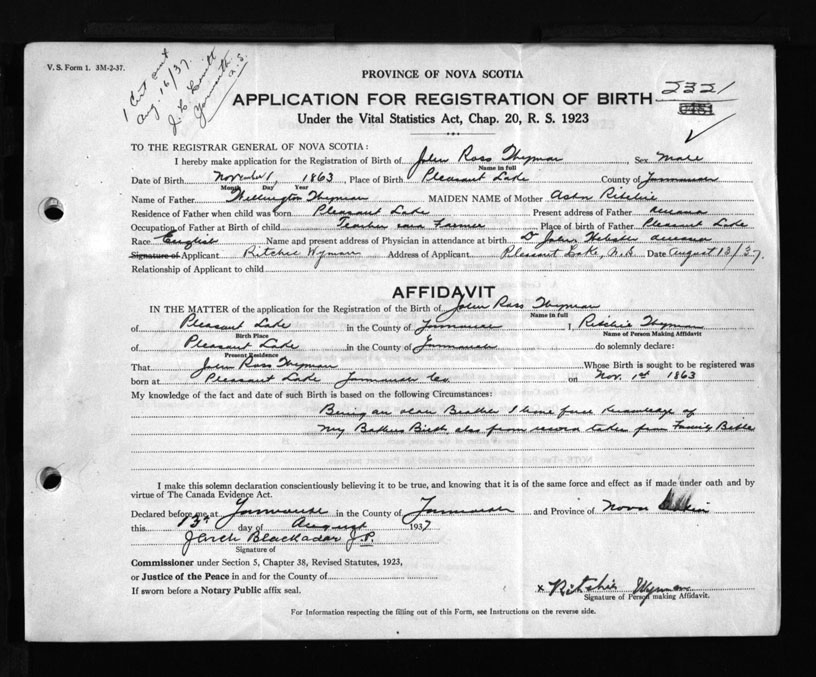 V. S. Form 1. 3M-2-37.
1 Cert sent
Aug. 16/37.
Yarmouth
N.S.
PROVINCE OF NOVA SCOTIA
2321
APPLICATION FOR REGISTRATION OF BIRTH
Under the Vital Statistics Act, Chap. 20, R. S. 1923
TO THE REGISTRAR GENERAL OF NOVA SCOTIA:
I hereby make application for the Registration of Birth of John Ross Wyman, Sex Male
Name in full
Date of Birth November 1, 1863, Place of Birth Pleasant Lake County of Yarmouth
Month Day Year
Name of Father Wellington Wyman MAIDEN NAME of Mother Ritchie
Residence of Father when child was born Pleasant Lake Present address of Father
Occupation of Father at Birth of child Teacher and Farmer Place of birth of Father Pleasant Lake
Race English Name and present address of Physician in attendance at birth Dr John
Signature of Applicant Ritchie Wyman Address of Applicant Pleasant Lake, N.S. Date August 13/37.
Relationship of Applicant to child
AFFIDAVIT
IN THE MATTER of the application for the Registration of the Birth of John Ross Wyman
Name in full
of Pleasant Lake in the County of Yarmouth I, Ritchie Wyman
Birth Place Name of Person Making Affidavit
of Pleasant Lake in the County of Yarmouth do solemnly declare:
Present Residence
That John Ross Wyman Whose Birth is sought to be registered was
born at Pleasant Lake Yarmouth Co. on Nov. 1st 1863
My knowledge of the fact and date of such Birth is based on the following Circumstances:
Being an older Brother I have knowledge of
My Brothers Birth, also from record taken from Family Bible
I make this solemn declaration conscientiously believing it to be true, and knowing that it is of the same force and effect as if made under oath and by
virtue of The Canada Evidence Act.
Declared before me at Yarmouth in the County of Yarmouth and Province of Nova Scotia
this 13th day of August 1937
Arch Blackadar J.P.
Signature of
Commissioner under Section 5, Chapter 38, Revised Statutes, 1923,
or Justice of the Peace in and for the County of
If sworn before a Notary Public affix seal.
x Ritchie Wyman
Signature of Person making Affidavit.
For Information respecting the filling out of this Form, see Instructions on the reverse side.